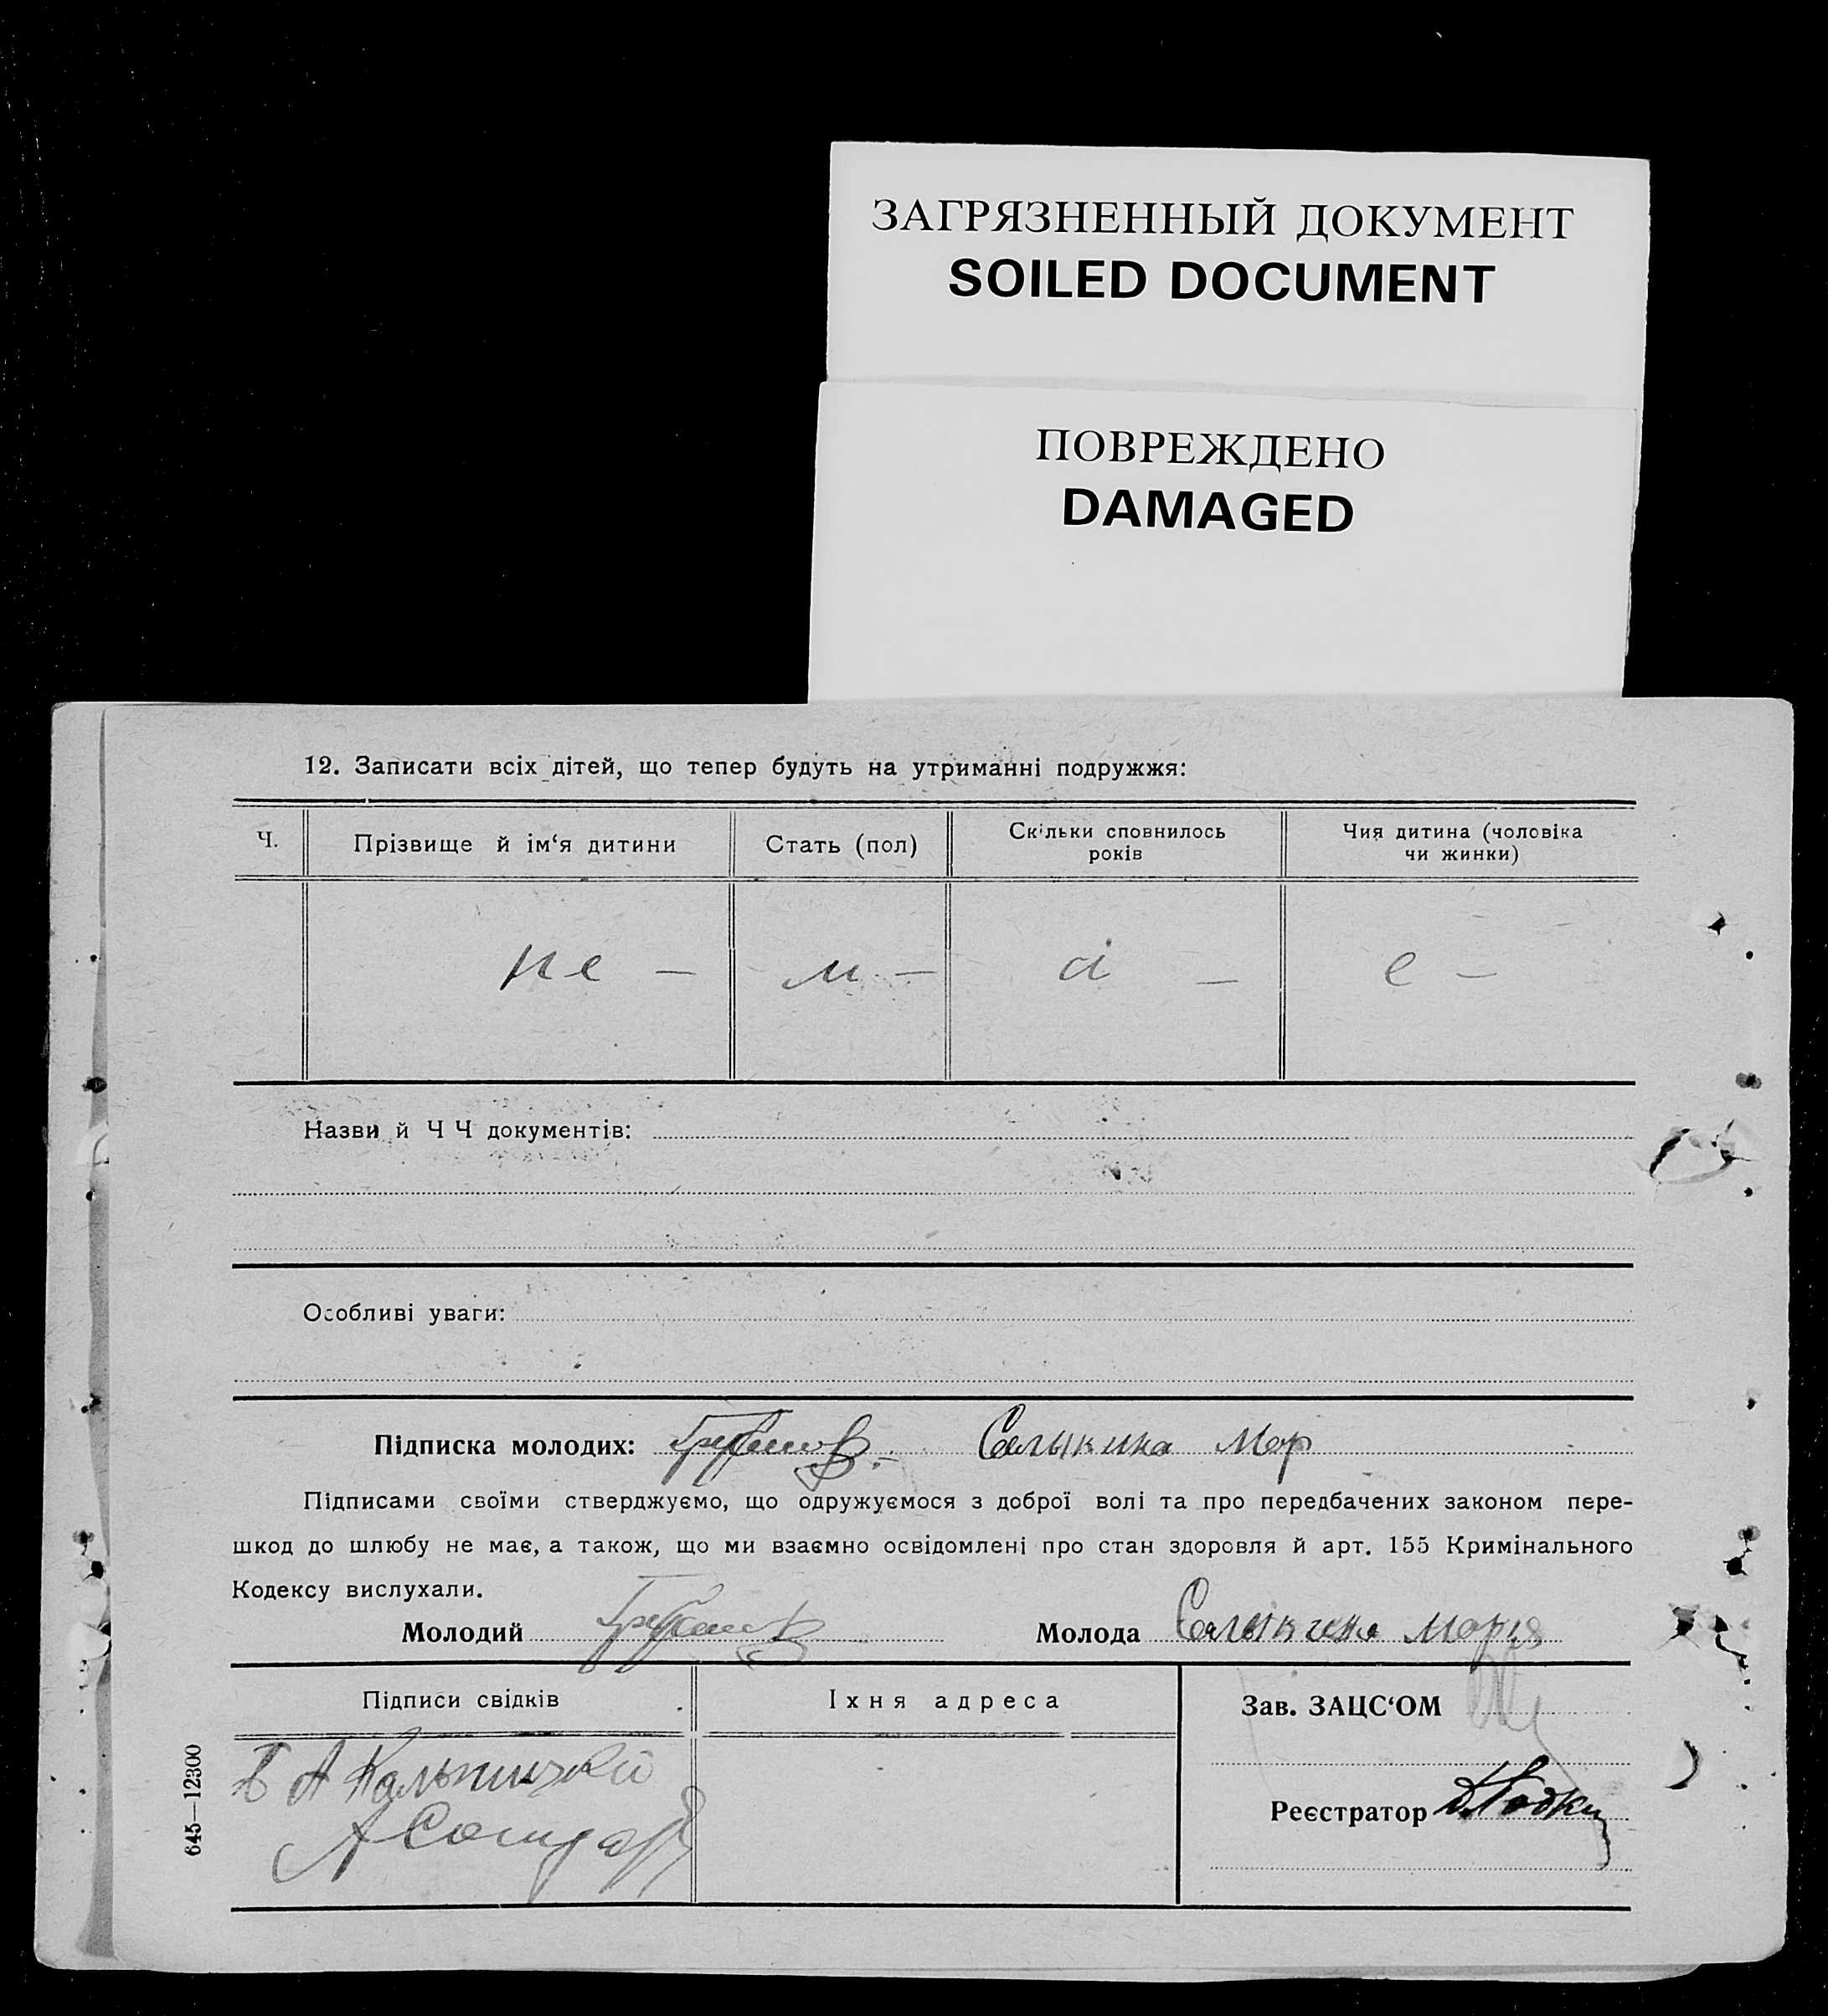 ЗАГРЯЗНЕННЫЙ ДОКУМЕНТ
SOILED DOCUMENT
ПОВРЕЖДЕНО
DAMAGED
12. Записати всіх дітей, що тепер будуть на утриманні подружжя:
Ч. Прізвище й ім‘я дитини Стать (пол) Скільки сповнилось років Чия дитина (чоловіка чи жинки)
не — м — а — е —
Назви й Ч Ч документів:
Особливі уваги:
Підписка молодих: Салыкина Мар
Підписами своїми стверджуємо, що одружуємося з доброї волі та про передбачених законом пере-
шкод до шлюбу не має, а також, що ми взаємно освідомлені про стан здоровля й арт. 155 Кримінального
Кодексу вислухали.
Молодий Молода Салыкина Мария
Підписи свідків Їхня адреса Зав. ЗАЦС‘ОМ
Реєстратор
645—12300